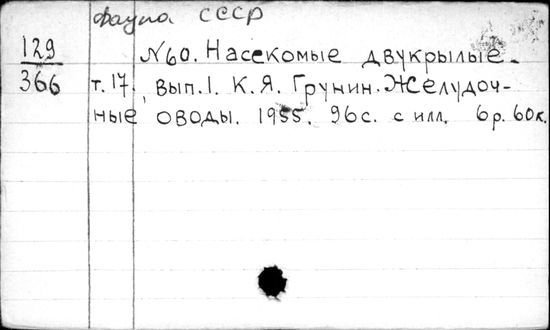 Фауна СССР
129 N60. Насекомые двукрылые.
366 т.17, вып.1. К.Я. Грунин. Желудоч-
ные оводы. 1955. 96с. с илл. 6р. 60к.